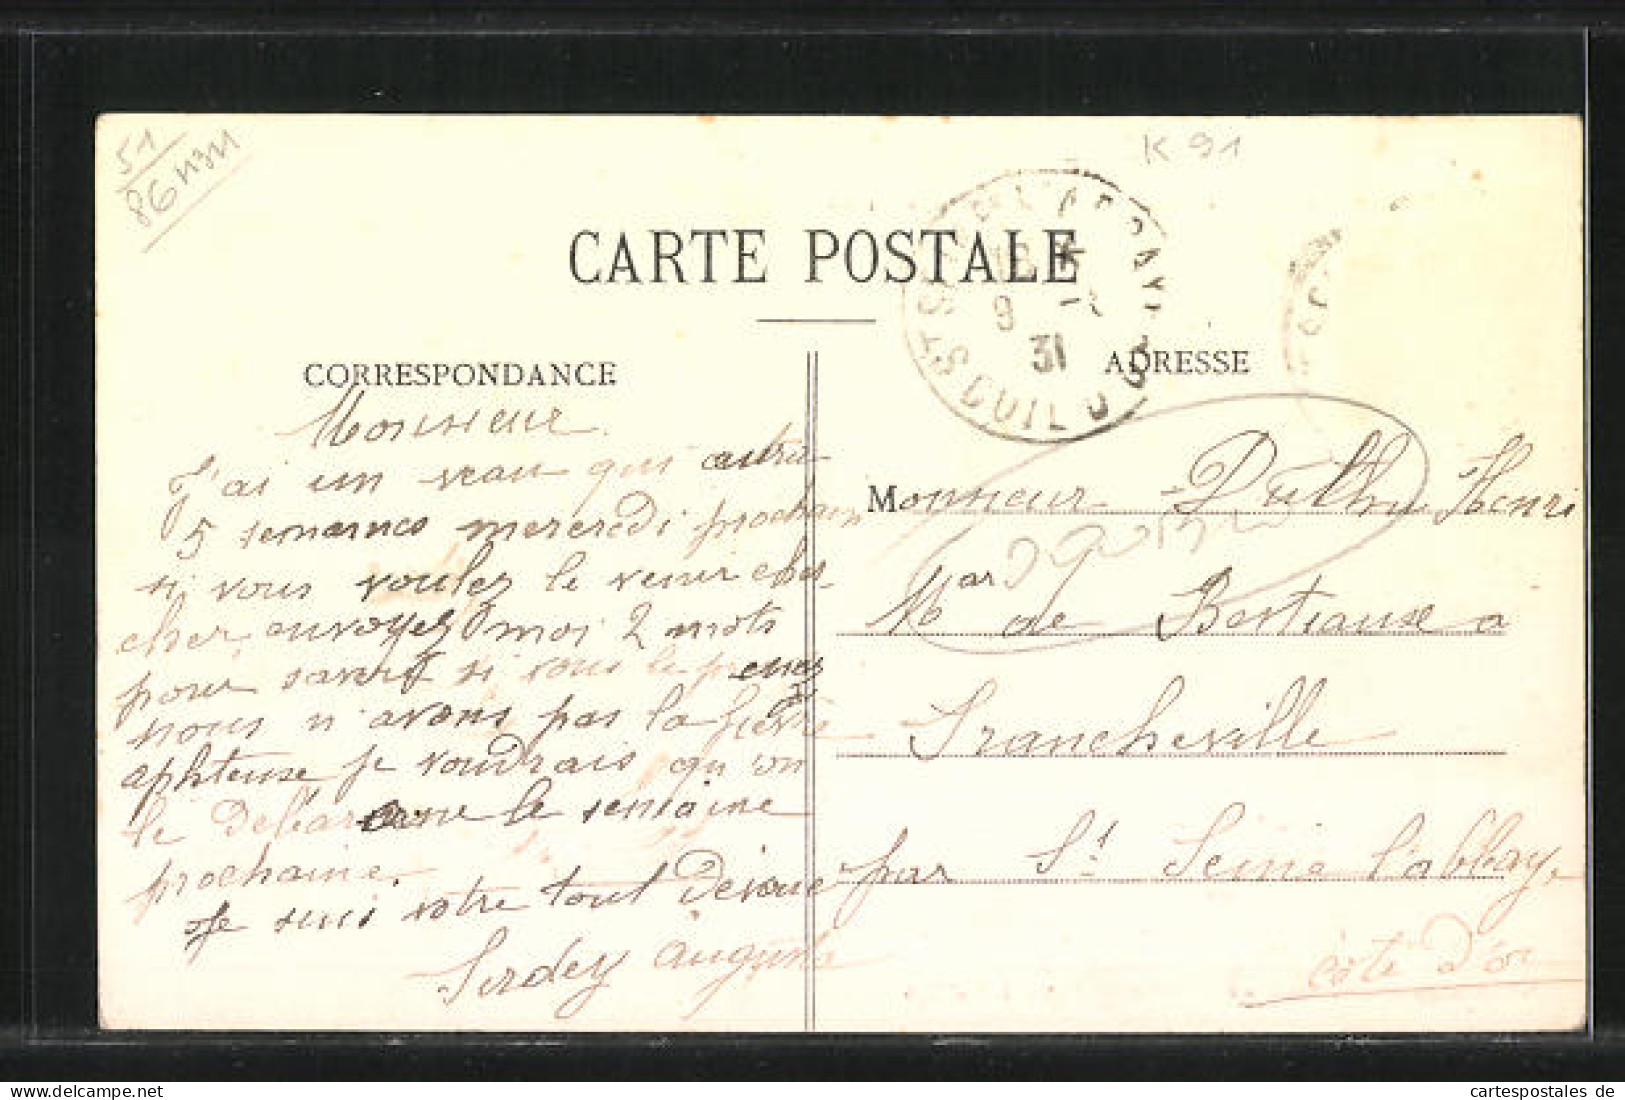 51
86 11311
K 91
CARTE POSTALE
ST SEINE L'ABBAYE
18
9 -1
31
CORRESPONDANCE
ADRESSE
Monsieur
J'ai un veau qui autra
5 semaines mercredi prochain
si vous voulez le venir cher
cher envoyez moi 2 mots
pour savoir si vous le prenez
nous n'avons pas la fievre
aphteuse je voudrais qu'on
le debarasse le semaine
prochaine.
Je suis votre tout Devoué
Serdey Auguste
Monsieur Duthu Henri
Mar de Bestiaux a
Francheville
par St Seine l'abbay
côte d'or
cartespostales de